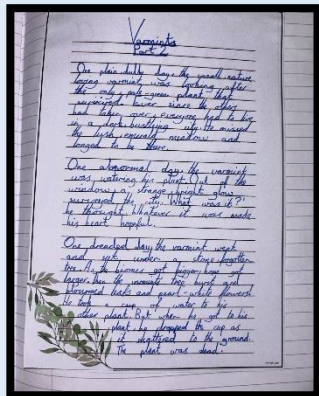 Varmints
Part 2
One plain, dully day, the small nature
loving varmint was looking after
the only pale-green plant that
survived. Ever since the others
had taken over, everyone had to live
in a dark bustling city. He missed
the lush, emerald meadow and
longed to be there.
One abnormal day, the varmint
was watering his plant. Out of the
window, a strange, bright glow
surrounded the city. 'What was it?'
he thought. Whatever it was made
his heart hopeful.
One dreaded day, the varmint went
and sat under a stone forgotten
tree. As the biomes got bigger, hope got
larger. Then the tree burst and
leaks and pearl-white flowers.
He took a cup of water to his
other plant. But when he got to his
plant, he dropped the cup as
it shattered to the ground.
The plant was dead.